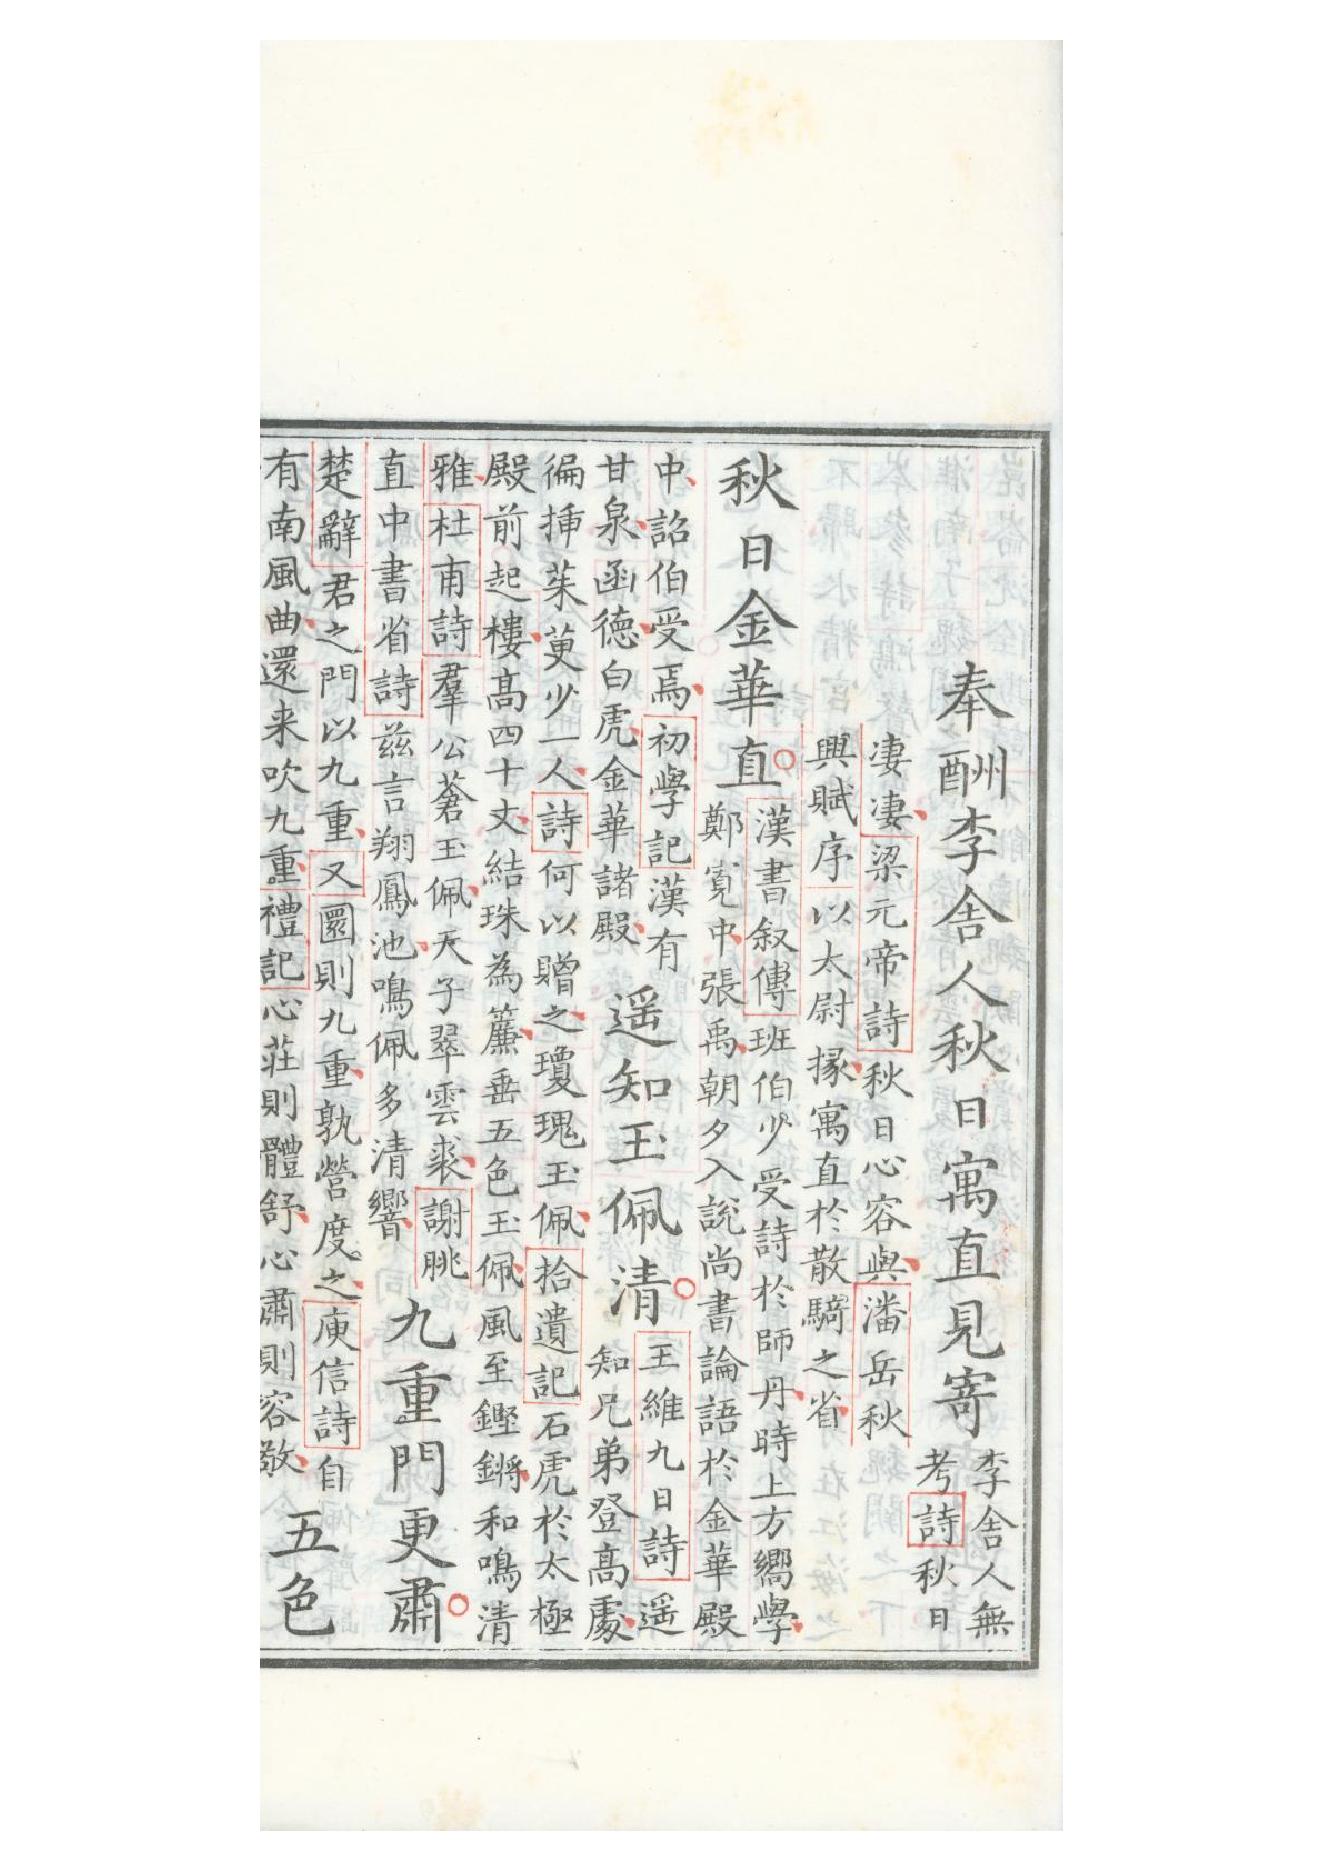 奉酬李舍人秋日寓直見寄
李舍人無
考詩秋日
淒淒梁元帝詩秋日心容與潘岳秋
興賦序以太尉掾寓直於散騎之省
秋日金華直
漢書叙傳班伯少受詩於師丹時上方嚮學
鄭寬中張禹朝夕入說尚書論語於金華殿
中詔伯受焉初學記漢有
甘泉函德白虎金華諸殿
遥知玉佩清
王維九日詩遥
知兄弟登高處
徧揷茱萸少一人詩何以贈之瓊瑰玉佩拾遺記石虎於太極
殿前起樓高四十丈結珠為簾垂五色玉佩風至鏗鏘和鳴清
雅杜甫詩羣公蒼玉佩天子翠雲裘謝朓
直中書省詩兹言翔鳳池鳴佩多清響
九重門更肅
楚辭君之門以九重又圜則九重孰營度之庾信詩自
有南風曲還来吹九重禮記心莊則體舒心肅則容敬
五色